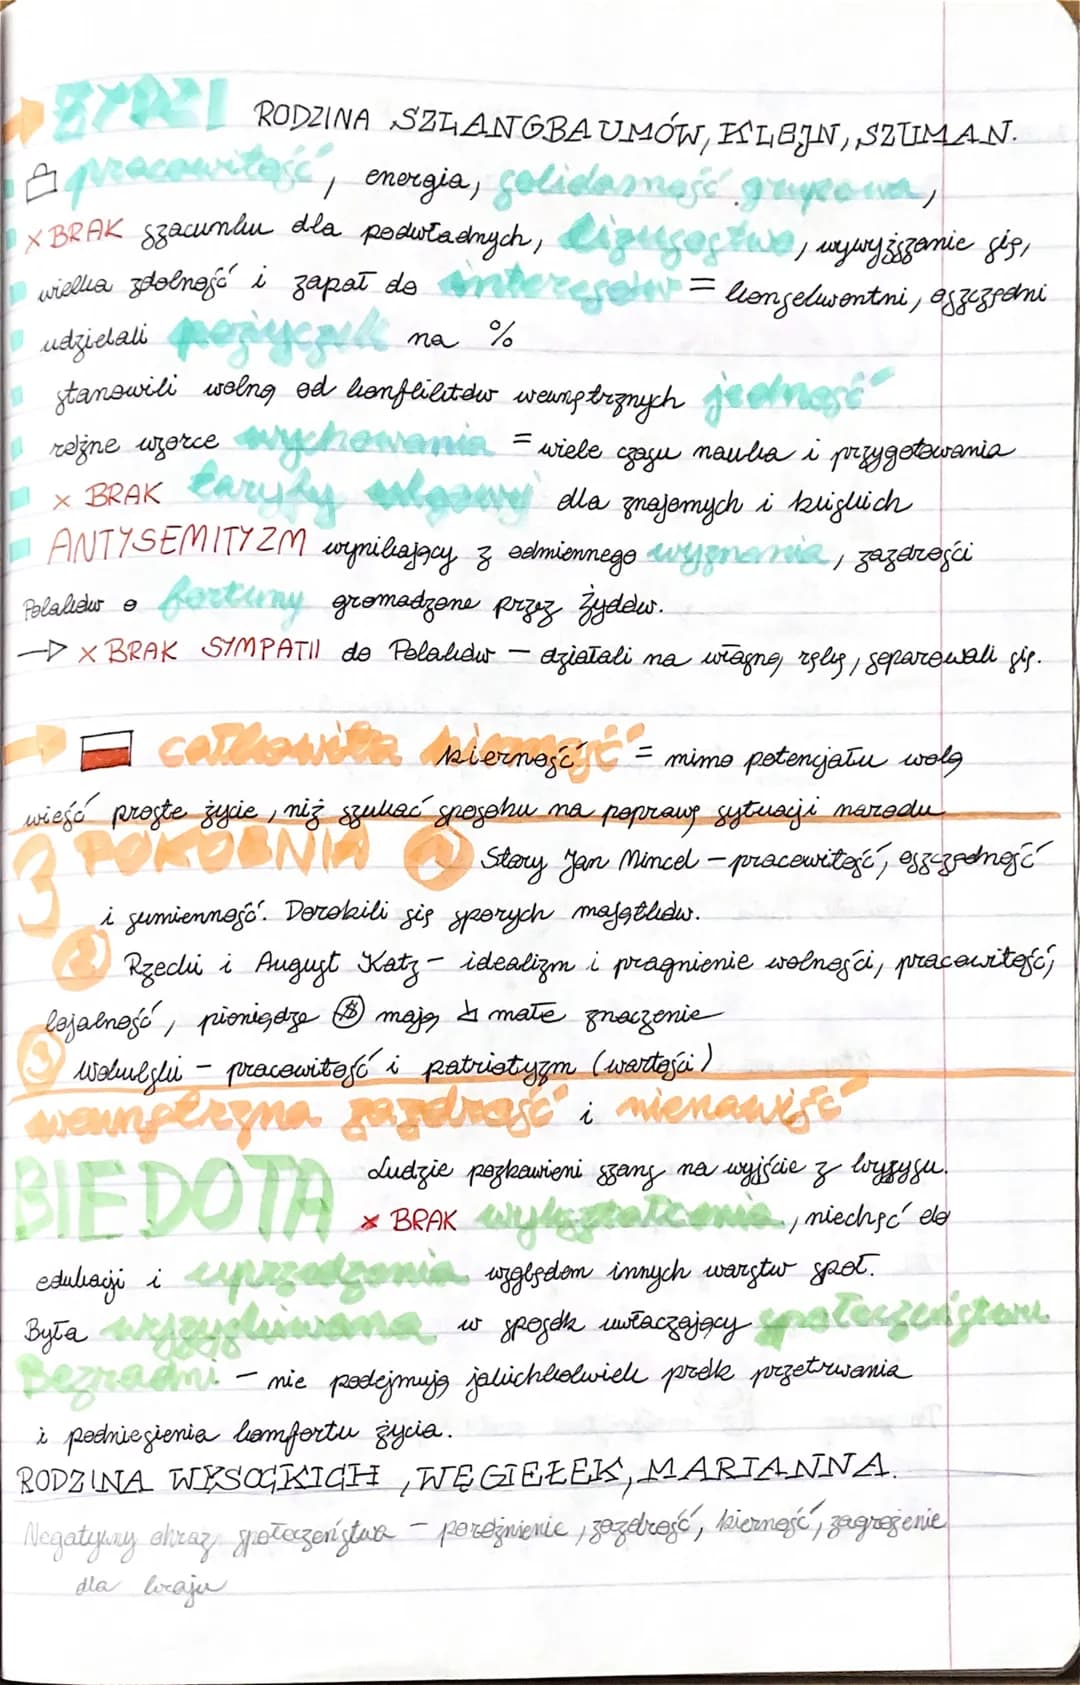 ŻYDZI RODZINA SZLANGBAUMÓW, KLEJN, SZUMAN.
pracowitość, energia, solidarność grupowa,
x BRAK szacunku dla podwładnych, lizusostwo, wywyższanie się,
wielka zdolność i zapał do interesów = konsekwentni, oszczędni
udzielali pożyczek na %
stanowili wolną od konfliktów wewnętrznych jedność
różne wzorce wychowania = wiele czasu nauka i przygotowania
x BRAK taryfy ulgowej dla znajomych i bliskich
ANTYSEMITYZM wynikający z odmiennego wyznania, zazdrości
Polaków o fortuny gromadzone przez Żydów.
→ x BRAK SYMPATII do Polaków – działali na własną rękę, separowali się.
→ całkowita bierność bierność = mimo potencjału wolą
wieść proste życie, niż szukać sposobu na poprawę sytuacji narodu
3 POKOLENIA 1 Stary Jan Mincel – pracowitość, oszczędność
i sumienność. Dorobili się sporych majątków.
2 Rzecki i August Katz – idealizm i pragnienie wolności, pracowitość,
lojalność, pieniądze $ mają ↘ małe znaczenie
3 Wokulski – pracowitość i patriotyzm (wartości)
wewnętrzna zazdrość i nienawiść
BIEDOTA Ludzie pozbawieni szans na wyjście z kryzysu.
x BRAK wykształcenia, niechęć do
edukacji i uprzedzenia względem innych warstw społ.
Była wyzyskiwana w sposób uwłaczający społeczeństwu.
Bezradni. – nie podejmują jakichkolwiek prób przetrwania
i podniesienia komfortu życia.
RODZINA WYSOCKICH, WĘGIEŁEK, MARIANNA.
Negatywny obraz społeczeństwa – poróżnienie, zazdrość, bierność, zagrożenie
dla kraju